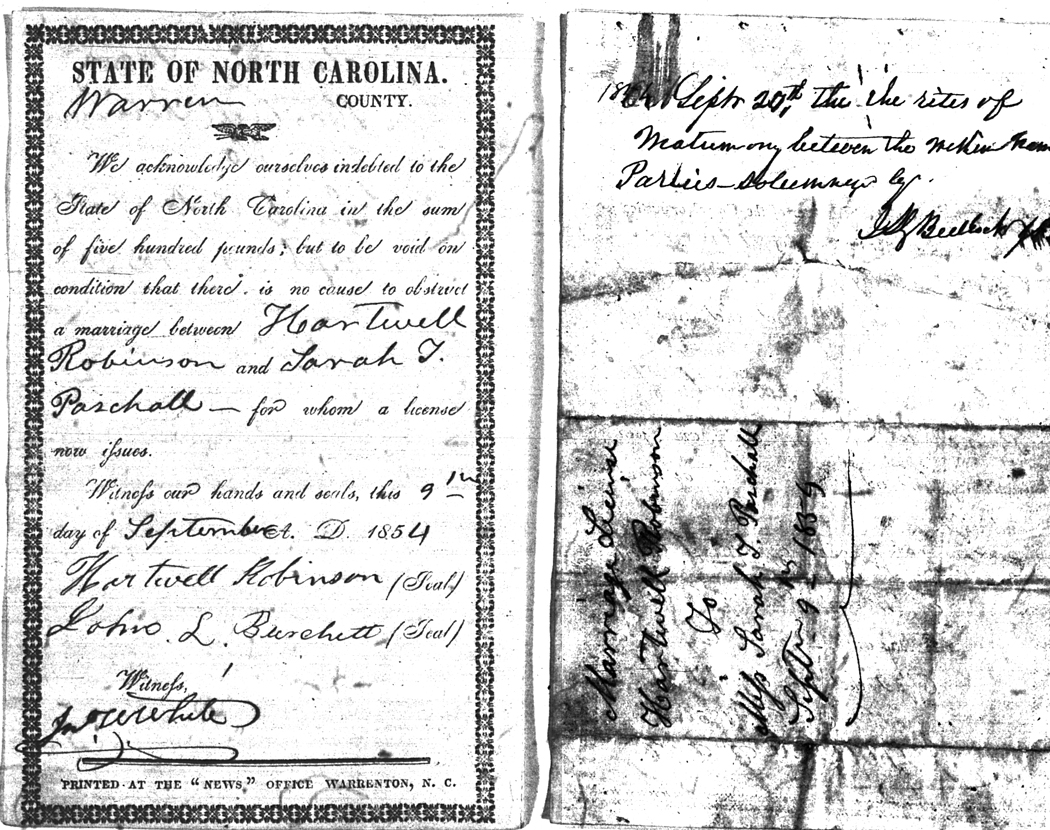 STATE OF NORTH CAROLINA.
Warren COUNTY.
We acknowledge ourselves indebted to the
State of North Carolina in the sum
of five hundred pounds; but to be void on
condition that there is no cause to obstruct
a marriage between Hartwell
Robinson and Sarah T.
Paschall — for whom a license
now issues.
Witness our hands and seals, this 9
day of September A. D. 1854
Hartwell Robinson (Seal)
John L Burchett (Seal)
Witness,
Jno W White
PRINTED AT THE "NEWS," OFFICE WARRENTON, N. C.
Septr 20th the the rites of
Matrimony between the within
Parties solemnized by
Bullock
Marriage License
Hartwell Robinson
To
Miss Sarah T. Paschall
Septm 9 1854